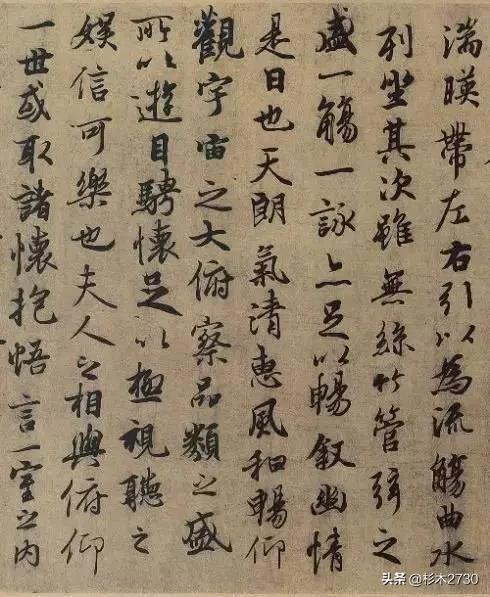 湍暎帶左右引以為流觴曲水
列坐其次雖無絲竹管弦之
盛一觴一詠亦足以暢敘幽情
是日也天朗氣清惠風和暢仰
觀宇宙之大俯察品類之盛
所以遊目騁懷足以極視聽之
娛信可樂也夫人之相與俯仰
一世或取諸懷抱悟言一室之內
头条 @杉木2730